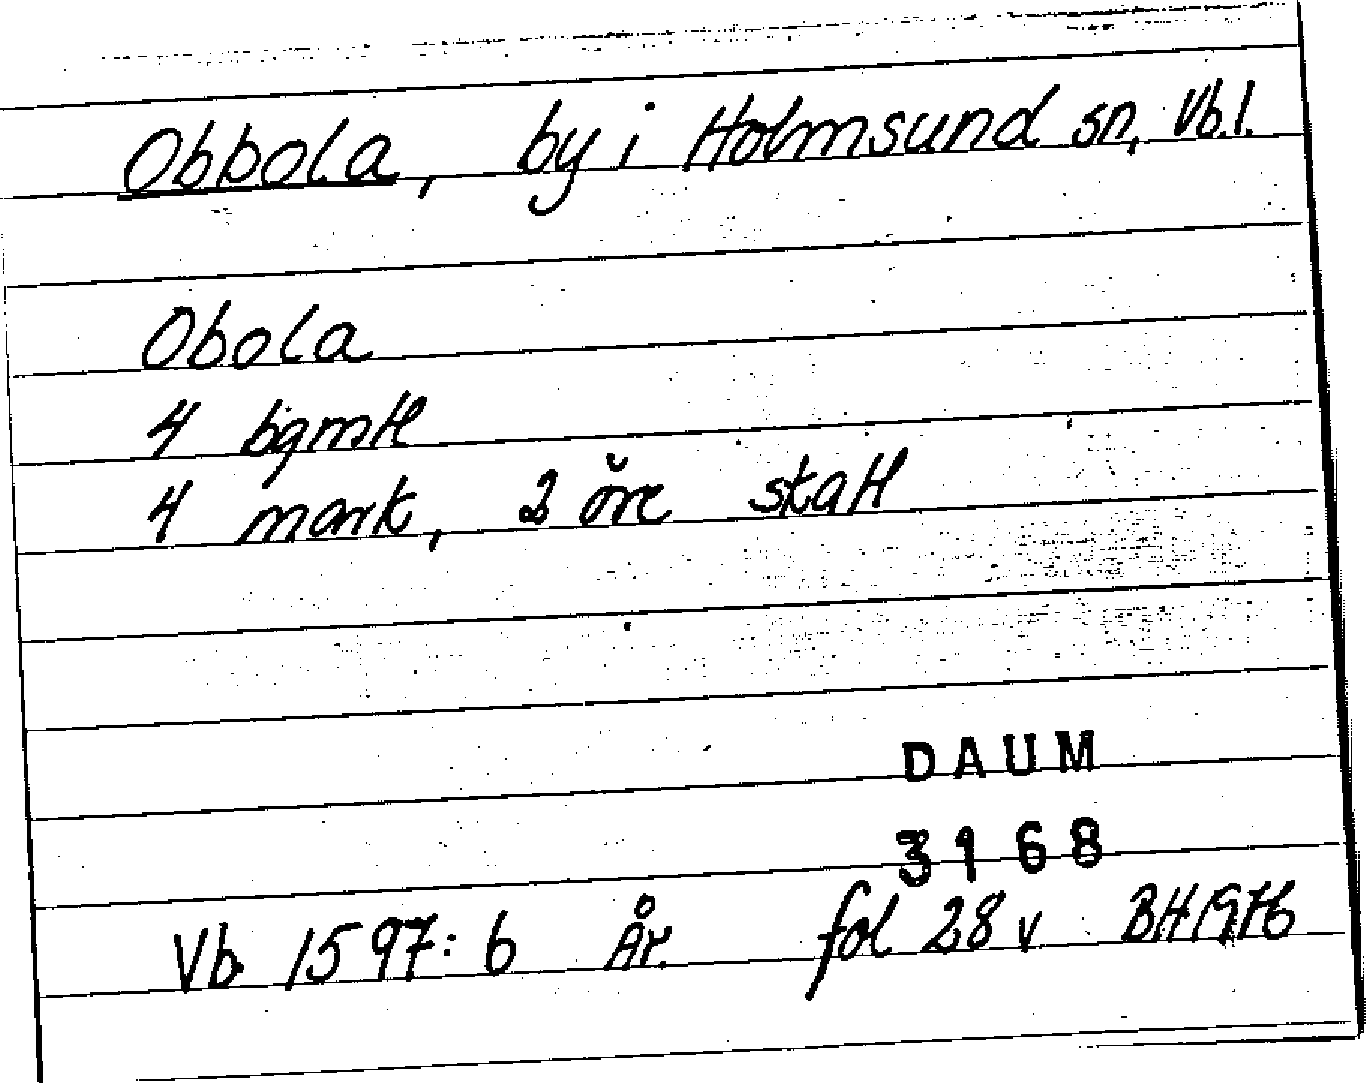 Obbola, by i Holmsund sn, Vb.l.
Obola
4 bgmtl
4 mark, 2 öre skatt
DAUM
3168
Vb 1597:6 År. fol 28 v BH 1976